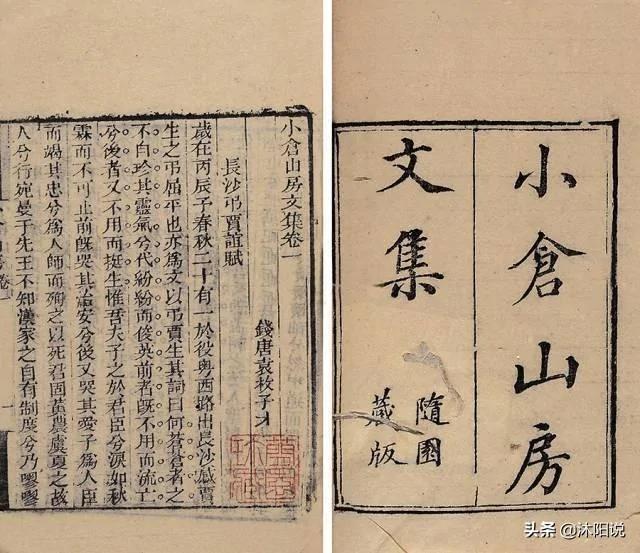 小倉山房
文集
隨園
藏版
小倉山房文集卷一
錢唐袁枚子才
長沙弔賈誼賦
歲在丙辰予春秋二十有一於役粵西路出長沙感賈
生之弔屈平也亦爲文以弔賈生其詞曰何蒼蒼者之
不自珍其靈氣兮代紛紛而俊英前者旣不用而流亡
兮後者又不用而挺生惟吾夫子之於君臣兮淚如秋
霖而不可止前旣哭其治安兮後又哭其愛子爲人臣
而竭其忠兮爲人師而殉之以死君固黃農虞夏之故
人兮行宛曼于先王不知漢家之自有制度兮乃嘐嘐
头条 @沐阳说